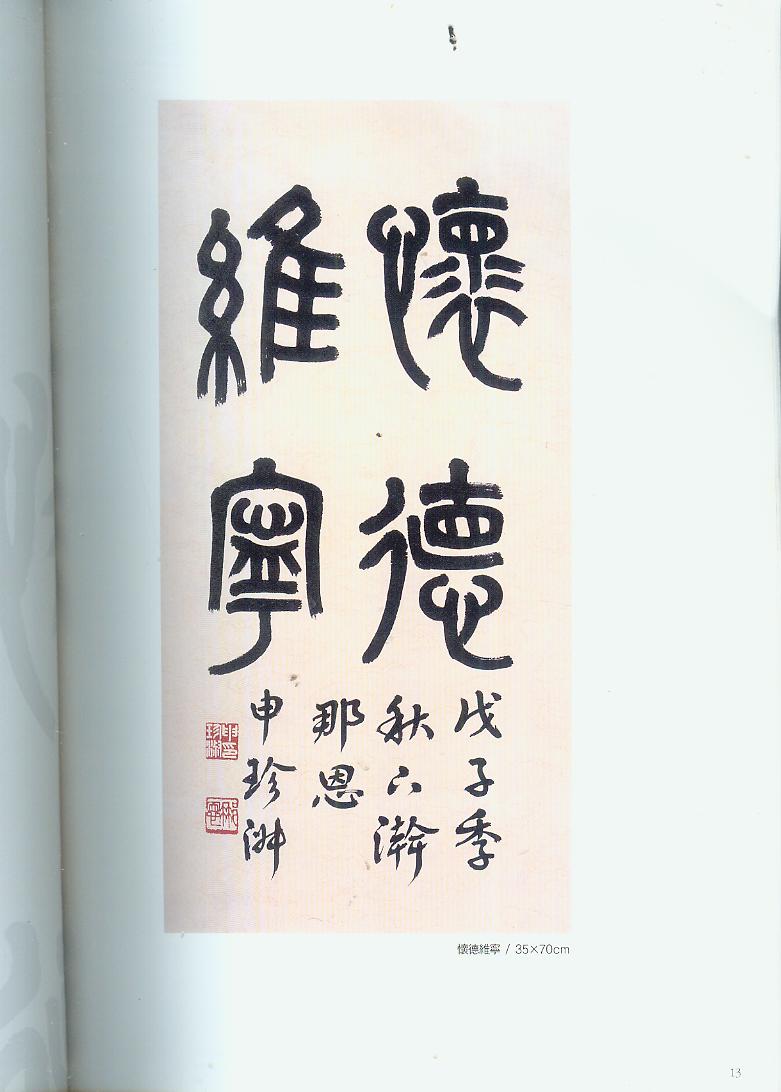 懷德
維寧
戊子季
秋下澣
那恩
申珍
那恩
懷德維寧 / 35×70cm
13